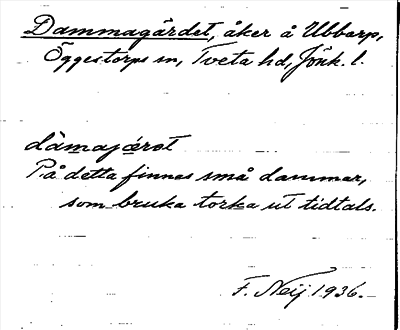 Dammagärdet, åker å Ubbarp,
Öggestorps sn, Tveta hd, Jönk. l.
dàmajǽret
På detta finnas små dammar,
som bruka torka ut tidtals.
F. Neij 1936.